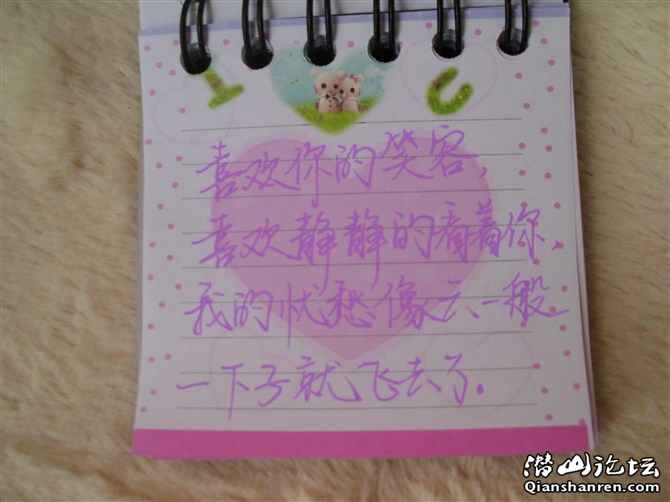 I U
喜欢你的笑容,
喜欢静静的看着你,
我的忧愁像云一般
一下子就飞去了.
潜山论坛
Qianshanren.com